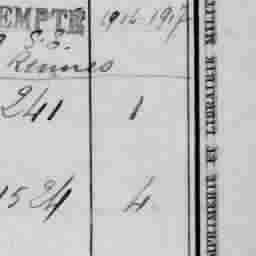 EMPTÉ 1916-1917
S.S.
Rennes
241 1
1524 4
IMPRIMERIE ET LIBRAIRIE MILIT